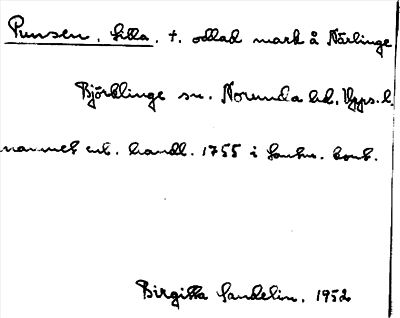 Pumsen, Lilla. †. odlad mark å Närlinge
Björklinge sn. Norunda hd. Upps. l.
namnet enl. handl. 1755 i lantm. kont.
Birgitta Sandelin. 1952